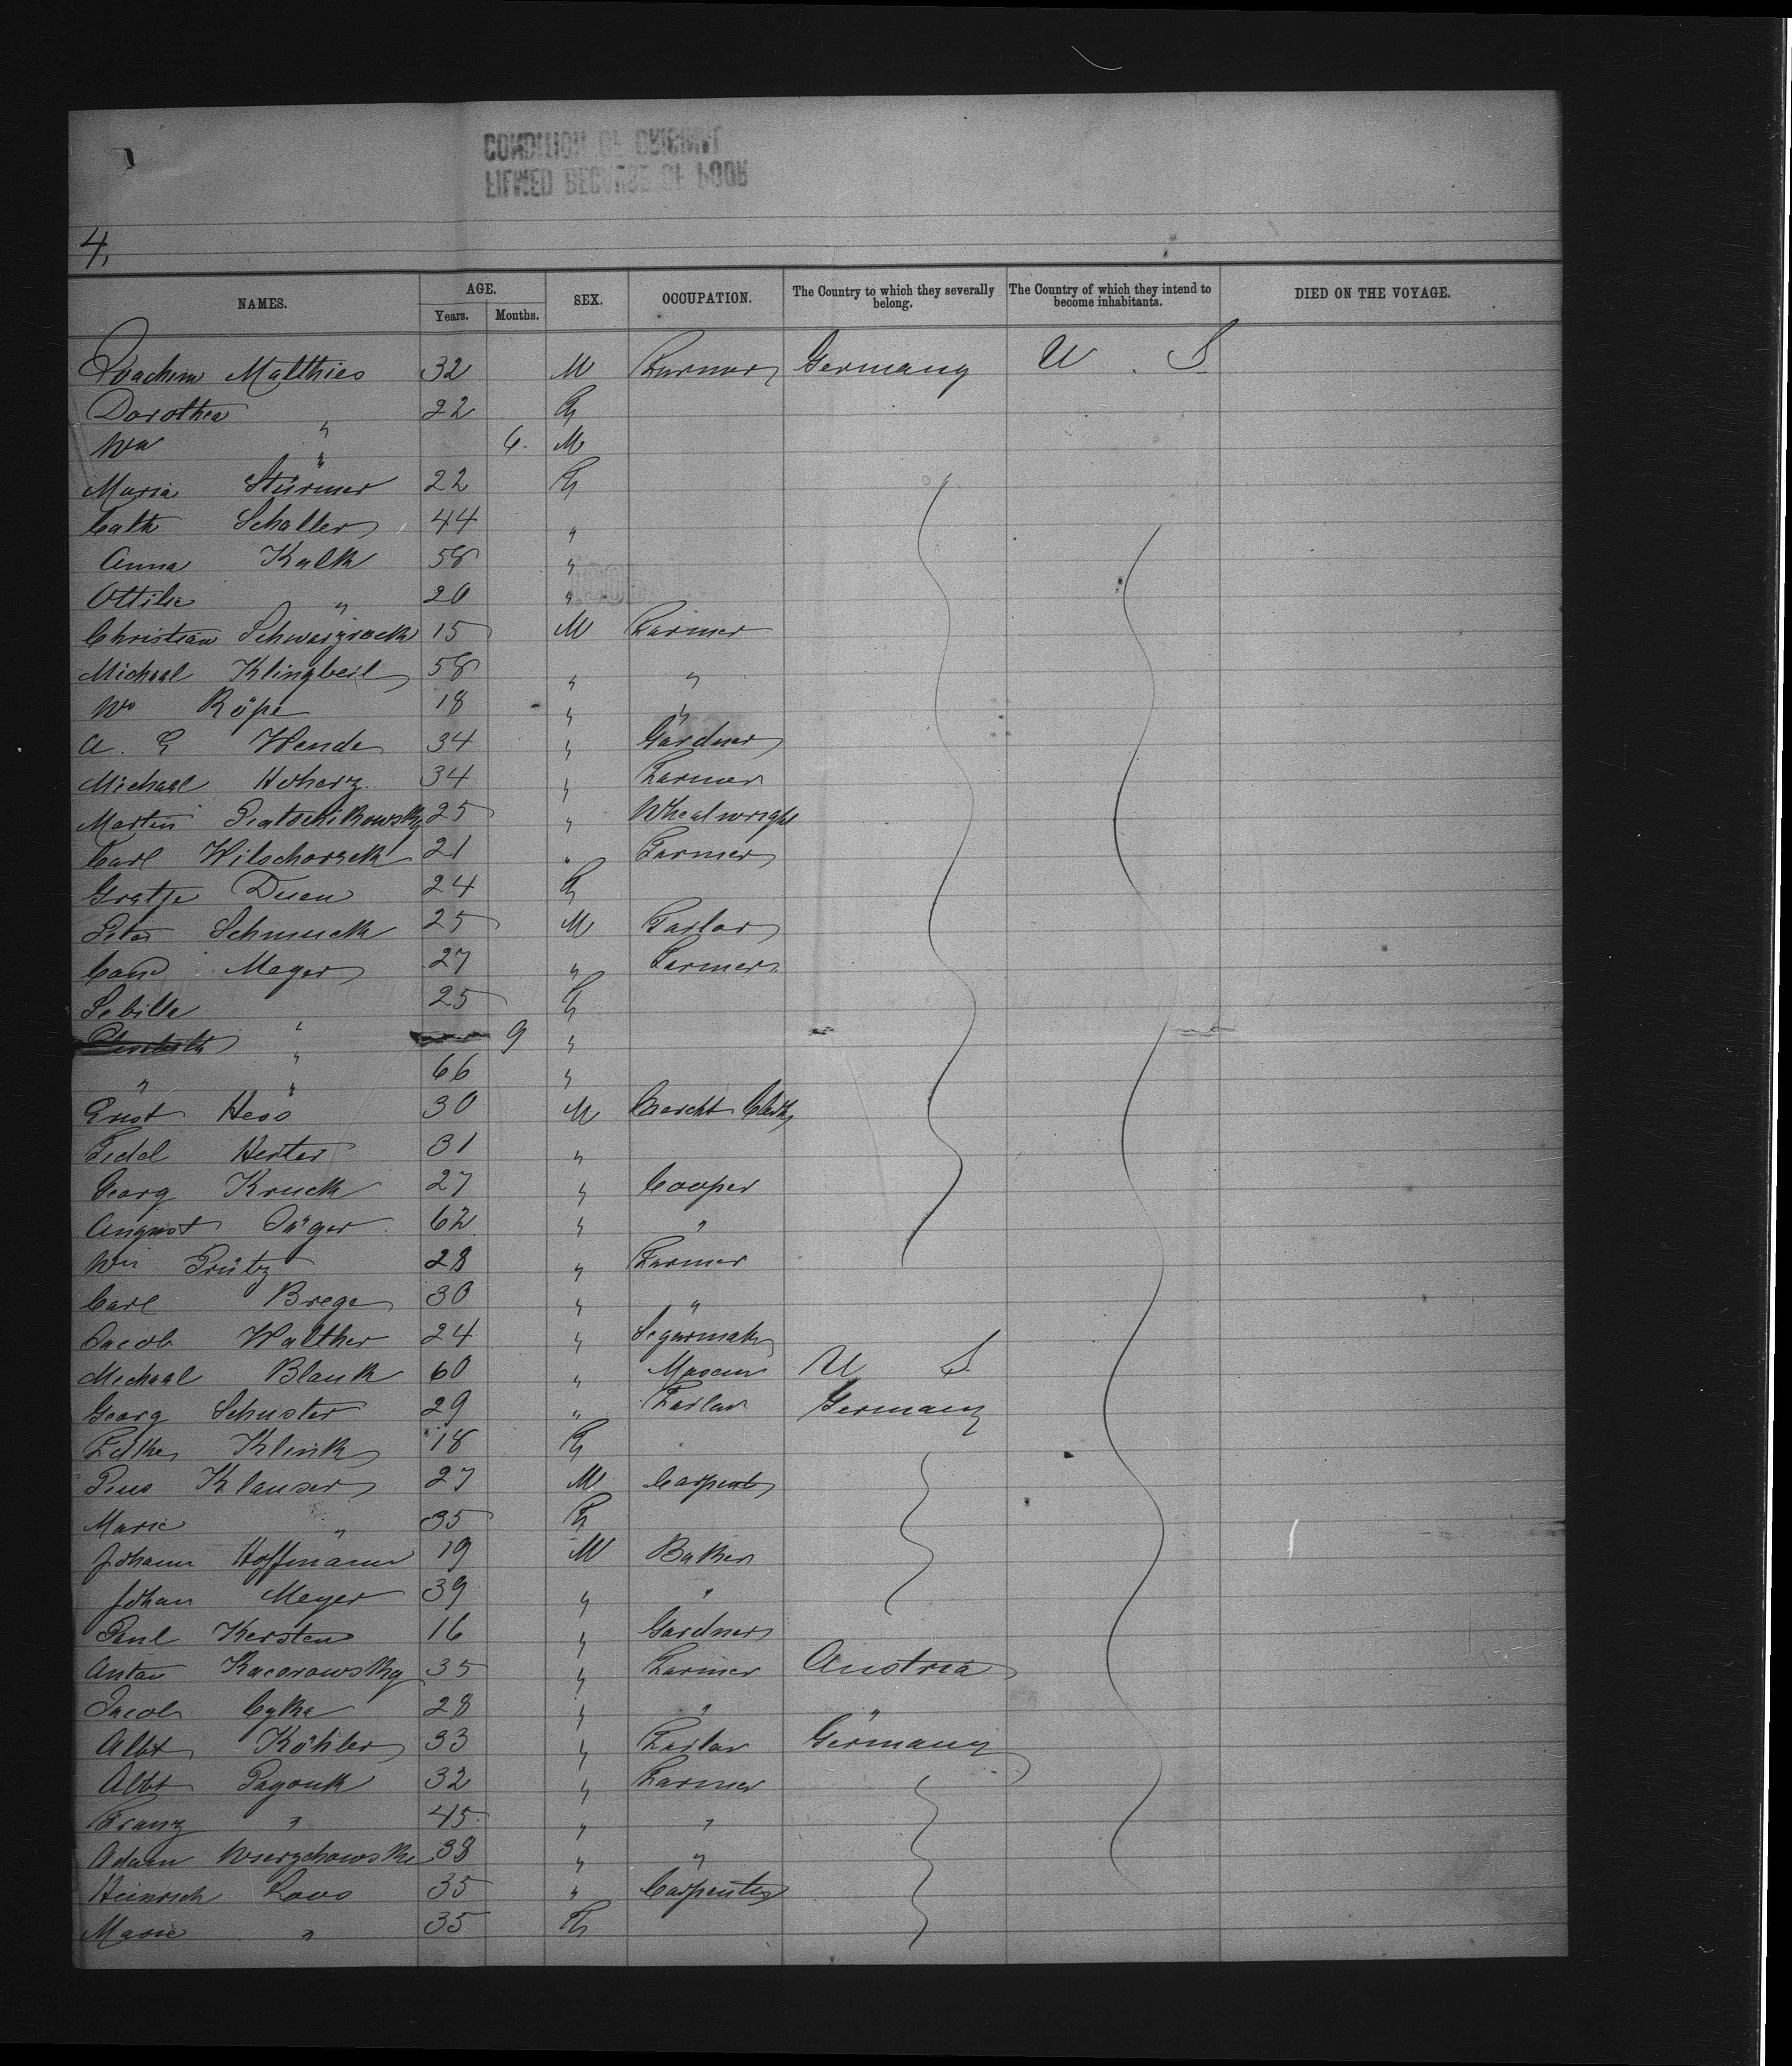 4.
NAMES. AGE. Years. Months. SEX. OCCUPATION. The Country to which they severally belong. The Country of which they intend to become inhabitants. DIED ON THE VOYAGE.
Joachim Matthies 32 M Farmer Germany U. S.
Dorothea " 22 F
Wm " 6. M
Maria Stürmer 22 F
Cath Schaller 44 "
Anna Kalk 58 "
Ottilie " 20 "
Christian 15 M Farmer
Michael Klingbeil 58 " "
Wm Röpe 18 " "
A. G Wende 34 " Gardner
Michael Hoherz 34 " Farmer
Martin 25 " Wheelwright
Carl 21 " Farmer
Gratje Duen 24 F
Peter Schmuck 25 M Tailor
Meyer 27 " Farmer
Sebille " 25 F
Elisabeth " 9 "
" " 66 "
Ernst Hess 30 M Mercht Clerk
Fidel Herter 31 "
Georg Kruck 27 " Cooper
August Jäger 62 " "
Wm Prütz 28 " Farmer
Carl Brege 30 " "
Jacob Walther 24 " Segarmak
Michael Blank 60 " Mason U S
Georg Schuster 29 " Tailor Germany
Klink 18 F
Pius Klauser 27 M Carpent
Marie " 35 F
Johann Hoffmann 19 M Baker
Johan Meyer 39 " "
Paul Kersten 16 " Gardner
Anton 35 " Farmer Austria
Jacob Cyka 28 " " "
Albt Köhler 33 " Tailor Germany
Albt 32 " Farmer
Franz " 45 " "
Adam 38 " "
Heinrich Loos 35 " Carpenter
Marie " 35 F